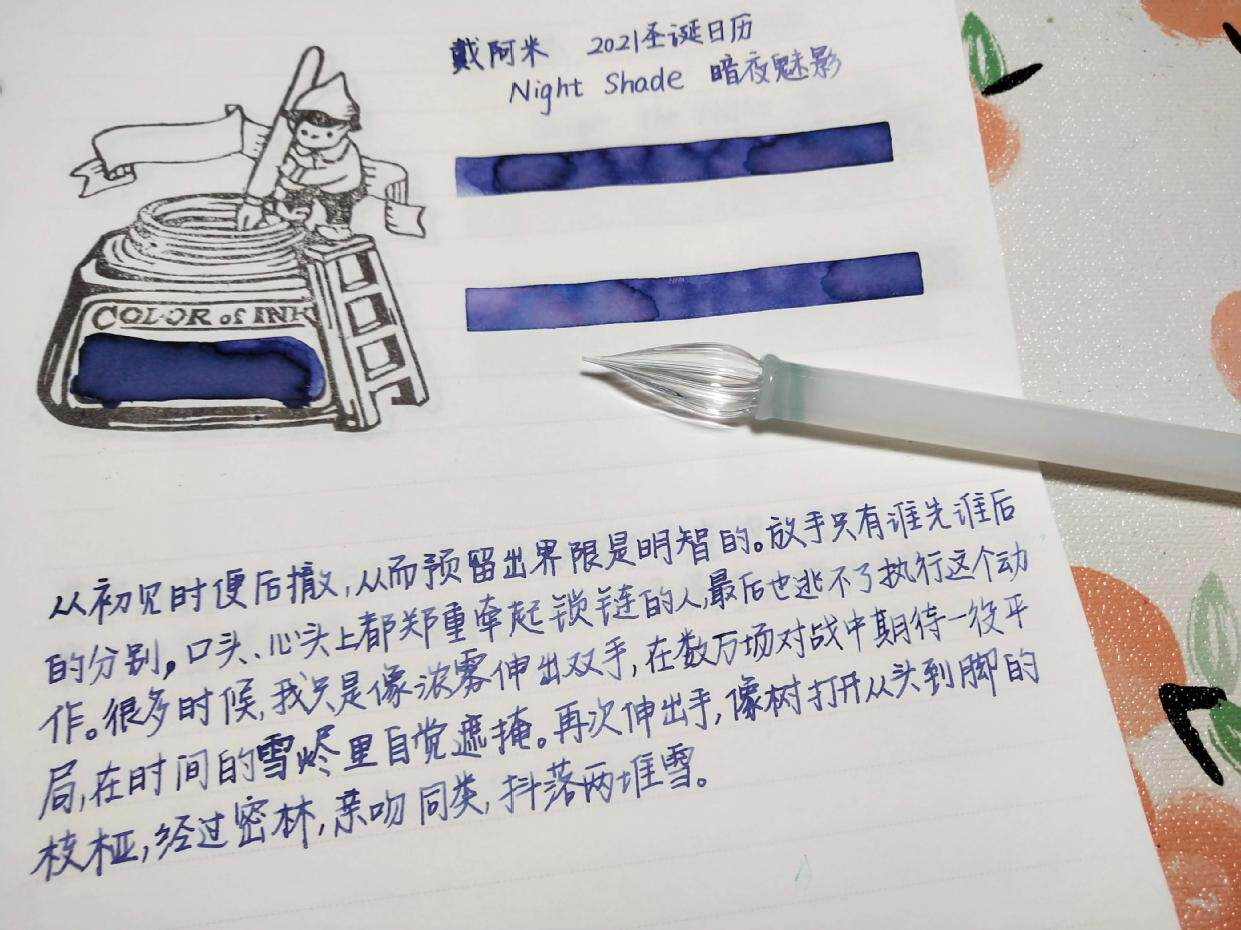 戴阿米 2021圣诞日历
Night Shade 暗夜魅影
COLOR of INK
从初见时便后撤,从而预留出界限是明智的。放手只有谁先谁后
的分别。口头、心头上都郑重牵起锁链的人,最后也逃不了执行这个动
作。很多时候,我只是像浓雾伸出双手,在数万场对战中期待一役平
局,在时间的雪烬里自觉遮掩。再次伸出手,像树打开从头到脚的
枝桠,经过密林,亲吻同类,抖落两堆雪。